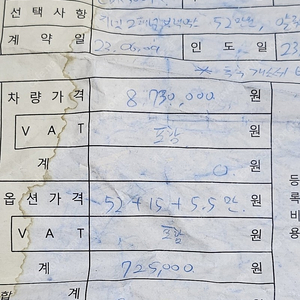 선택사항 52만,
계약일 23. 인도일 23
차량가격 8,730,000 원
VAT 포함 원
계 0 원
옵션가격 52+15+5.5만 원
VAT 포함 원
계 725,000 원
합계
등록비용